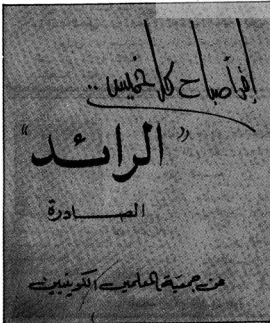 إقرأ صباح كل خميس ..
"الرائد"
الصادرة
عن جمعية المعلمين الكويتيين